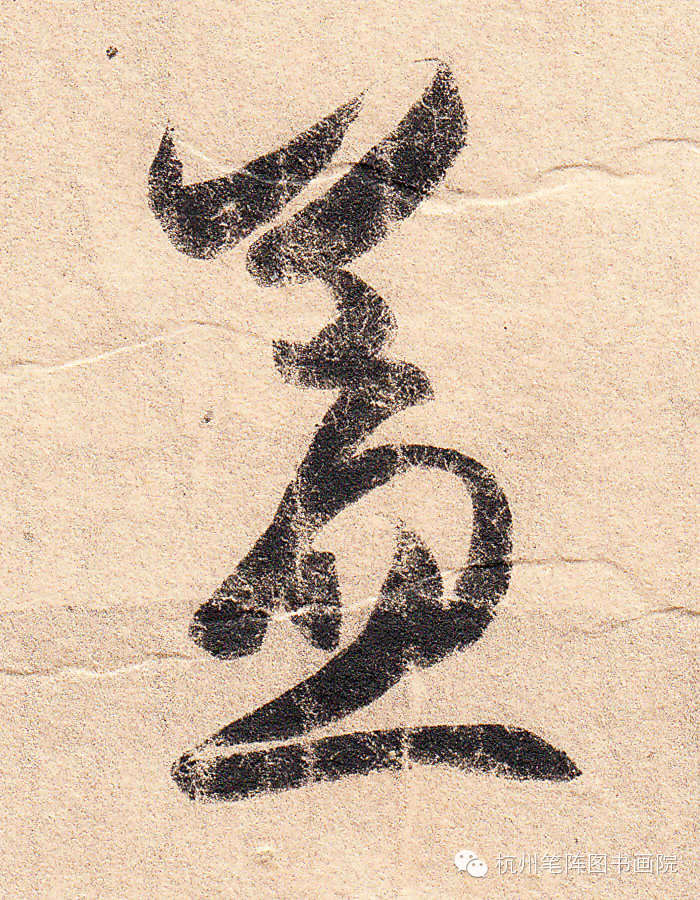 盖
杭州笔阵图书画院